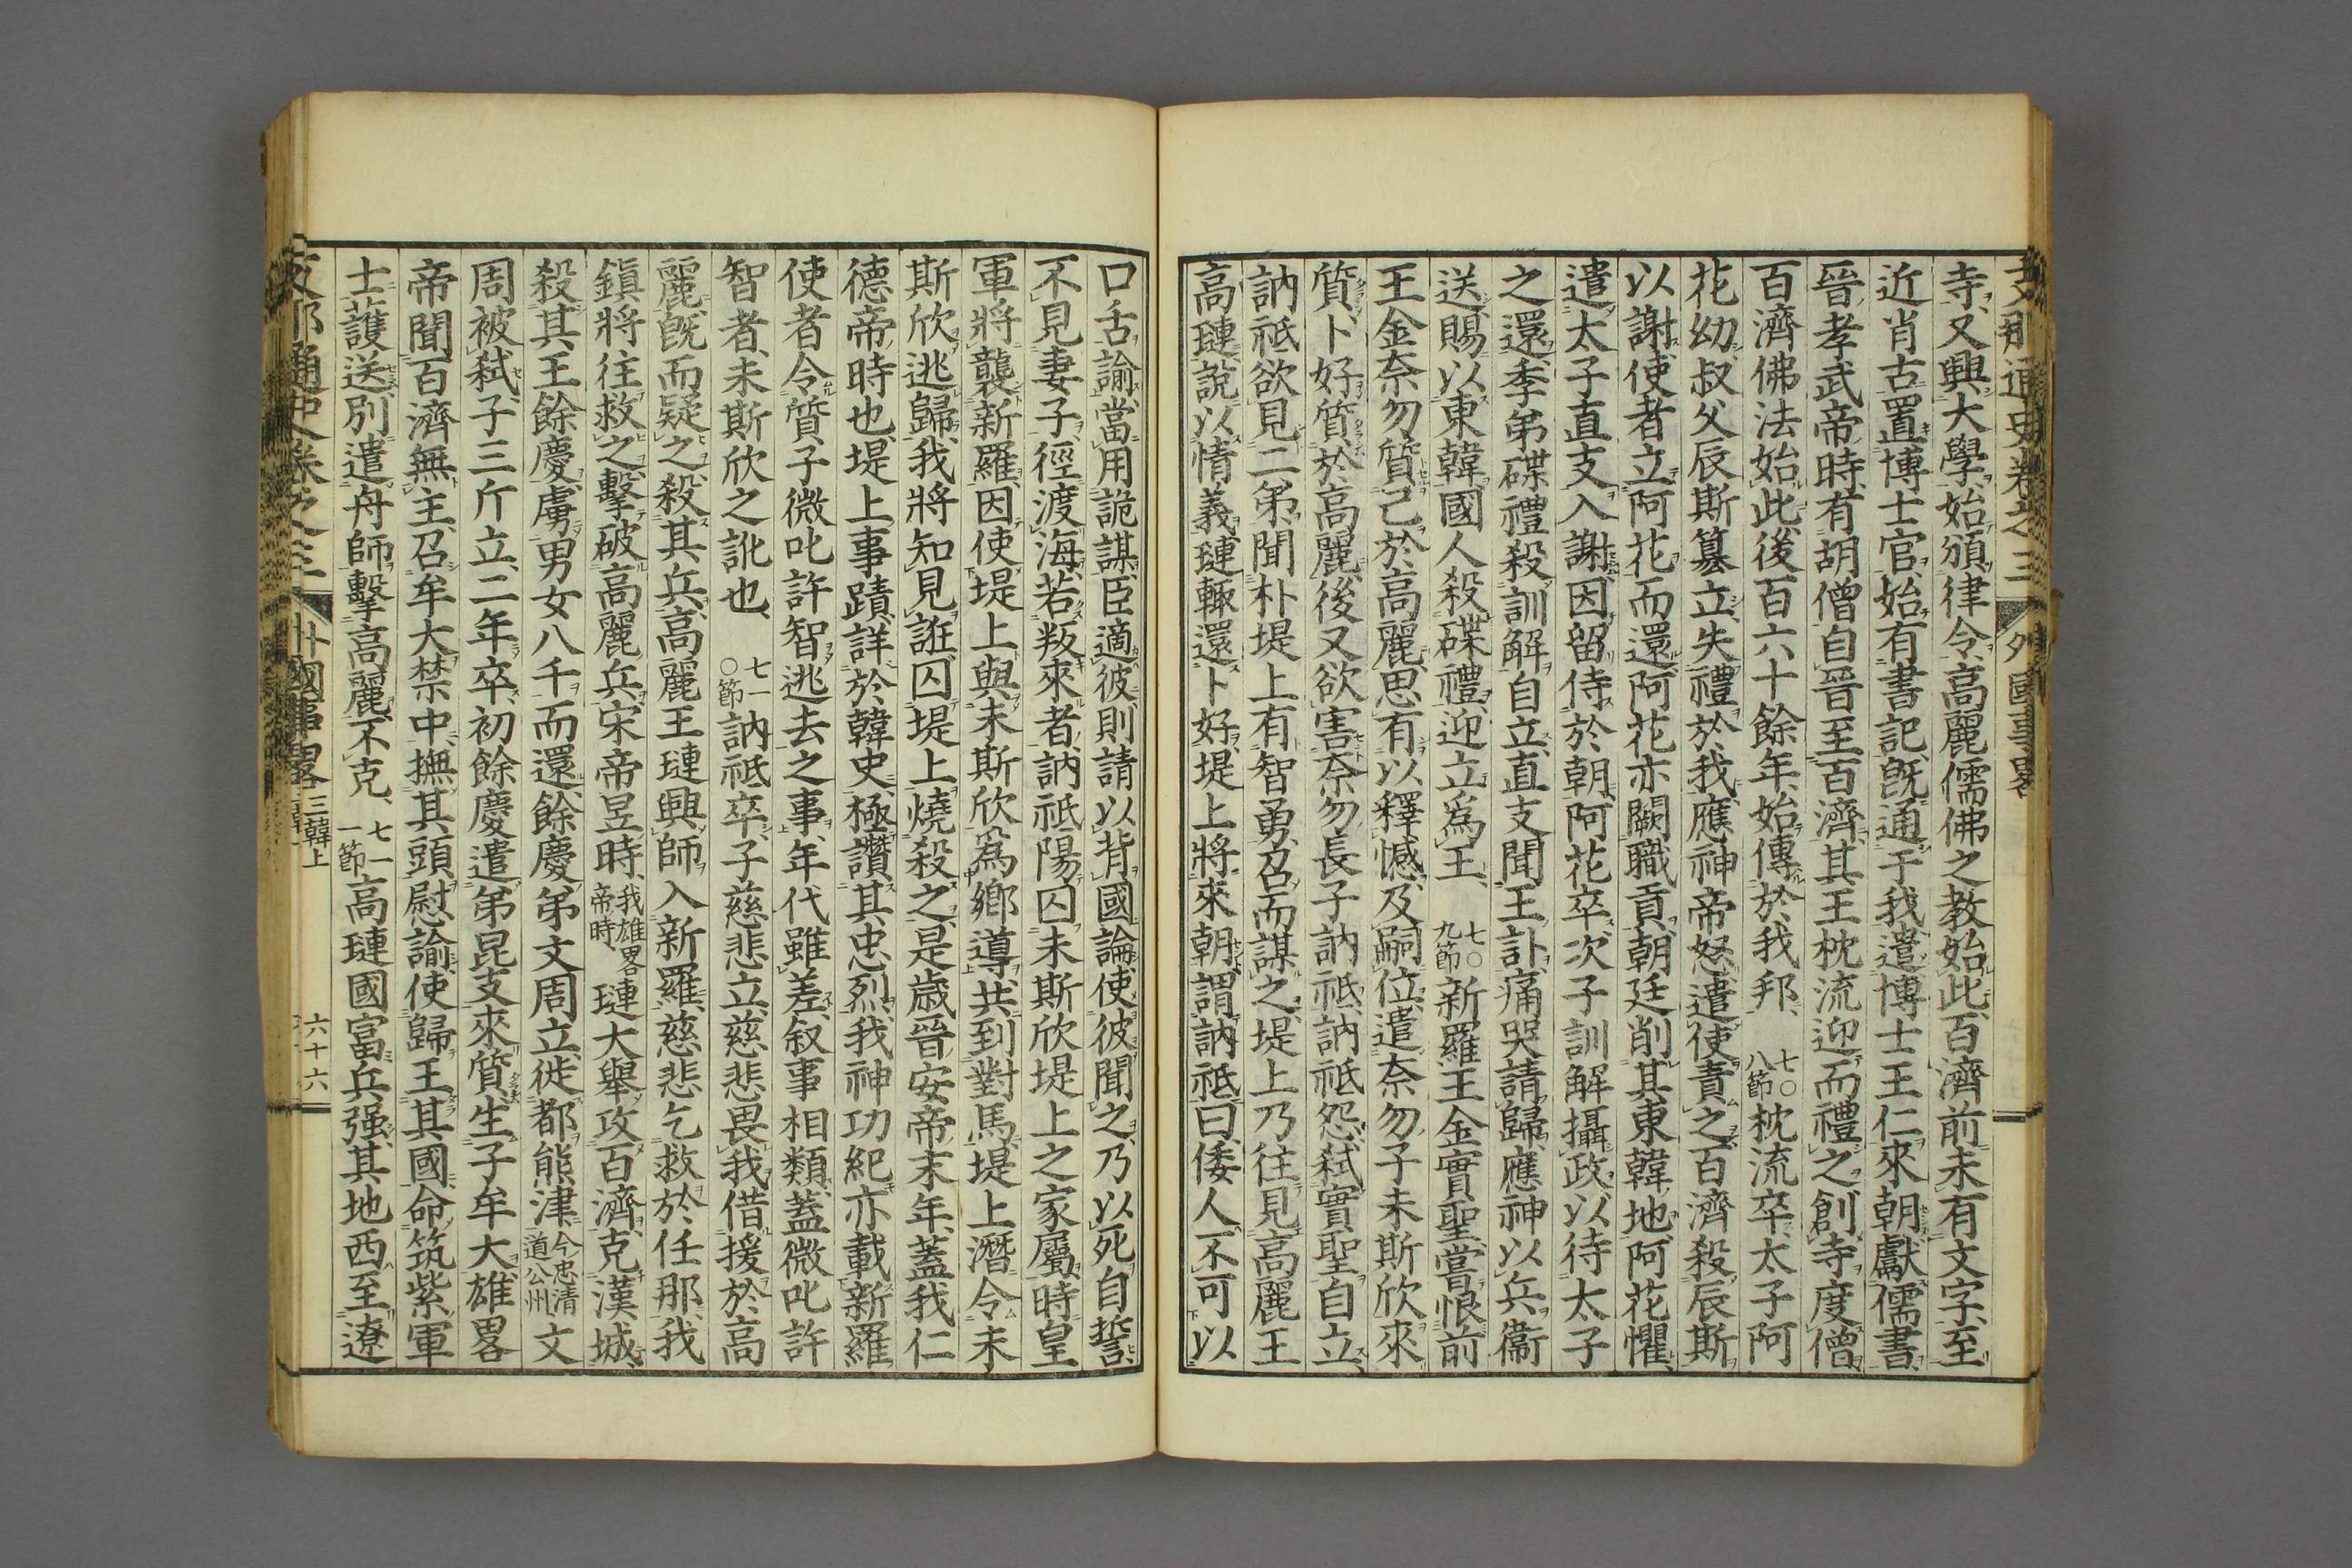 支那通史卷之三 外國事畧
寺、又興大學、始頒律令、高麗儒佛之教始此、百濟前未有文字、至
近肖古置博士官、始有書記、既通于我、遣博士王仁來朝獻儒書、
晉孝武帝時、有胡僧自晉至百濟、其王枕流迎而禮之、創寺度僧、
百濟佛法始此、後百六十餘年、始傳於我邦、 七〇八節 枕流卒、太子阿
花幼、叔父辰斯簒立、失禮於我、應神帝怒、遣使責之、百濟殺辰斯
以謝、使者立阿花而還、阿花亦闕職貢、朝廷削其東韓地、阿花懼、
遣太子直支入謝、因留侍於朝、阿花卒、次子訓解攝政、以待太子
之還、季弟碟禮殺訓解自立、直支聞王訃、痛哭請歸、應神以兵衞
送、賜以東韓、國人殺碟禮、迎立爲王、 七〇九節 新羅王金實聖、嘗恨前
王金奈勿質己於高麗、思有以釋憾、及嗣位、遣奈勿子未斯欣來
質、卜好質於高麗、後又欲害奈勿長子訥祗、訥祗怨、弑實聖自立、
訥祗欲見二弟、聞朴堤上有智勇、召而謀之、堤上乃往見高麗王
高璉、說以情義、璉輙還卜好、堤上將來朝、謂訥祗曰、倭人不可以
口舌諭、當用詭謀、臣適彼、則請以背國論、使彼聞之、乃以死自誓、
不見妻子、徑渡海、若叛來者、訥祗陽囚未斯欣堤上之家屬、時皇
軍將襲新羅、因使堤上與未斯欣爲鄉導、共到對馬、堤上潛令未
斯欣逃歸、我將知見誑、囚堤上燒殺之、是歲晉安帝末年、蓋我仁
德帝時也、堤上事蹟、詳於韓史、極讚其忠烈、我神功紀亦載新羅
使者令質子微叱許智逃去之事、年代雖差、叙事相類、蓋微叱許
智者、未斯欣之訛也、 七一〇節 訥祗卒、子慈悲立、慈悲畏我、借援於高
麗、既而疑之、殺其兵、高麗王璉興師入新羅、慈悲乞救於任那、我
鎭將往救之、擊破高麗兵、宋帝昱時、 我雄畧帝時 璉大舉攻百濟、克漢城、
殺其王餘慶、虜男女八千而還、餘慶弟文周立、徙都熊津、 今忠清道公州 文
周被弑、子三斤立、二年卒、初餘慶遣弟昆支來質、生子牟大、雄畧
帝聞百濟無主、召牟大禁中、撫其頭、慰諭使歸王其國、命筑紫軍
士護送、別遣舟師擊高麗、不克、 七一一節 高璉國富兵强、其地西至遼
支那通史卷之三 外國事畧 三韓上 六十六